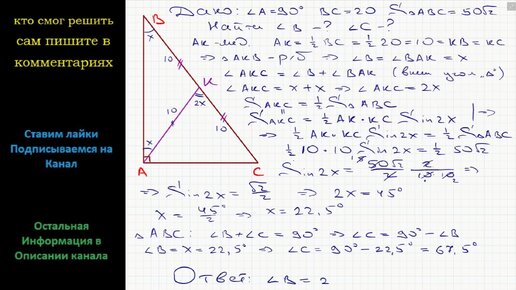 кто смог решить
сам пишите в
комментариях
Ставим лайки
Подписываемся на
Канал
Остальная
Информация в
Описании канала
Дано: ∠A=90° BC=20 S△ABC=50√2
Найти ∠B -? ∠C -?
AK-мед. AK=½BC=½·20=10=KB=KC
⇒ △AKB-р/б ⇒ ∠B=∠BAK=x
∠AKC=∠B+∠BAK (внеш угол △)
∠AKC=x+x ⇒ ∠AKC=2x
S△AKC=½S△ABC
S△AKC=½AK·KC Sin2x |⇒
⇒ ½AK·KC Sin2x=½S△ABC
½10·10 Sin2x=½50√2
Sin2x=50√2/2 · 2/10·10
⇒ Sin2x=√2/2 ⇒ 2x=45°
x=45°/2 ⇒ x=22,5°
△ABC: ∠B+∠C=90° ⇒ ∠C=90°-∠B
∠B=x=22,5° ⇒ ∠C=90°-22,5°=67,5°
Ответ: ∠B=2
B
x
10
K
2x
10
10
x
A
C